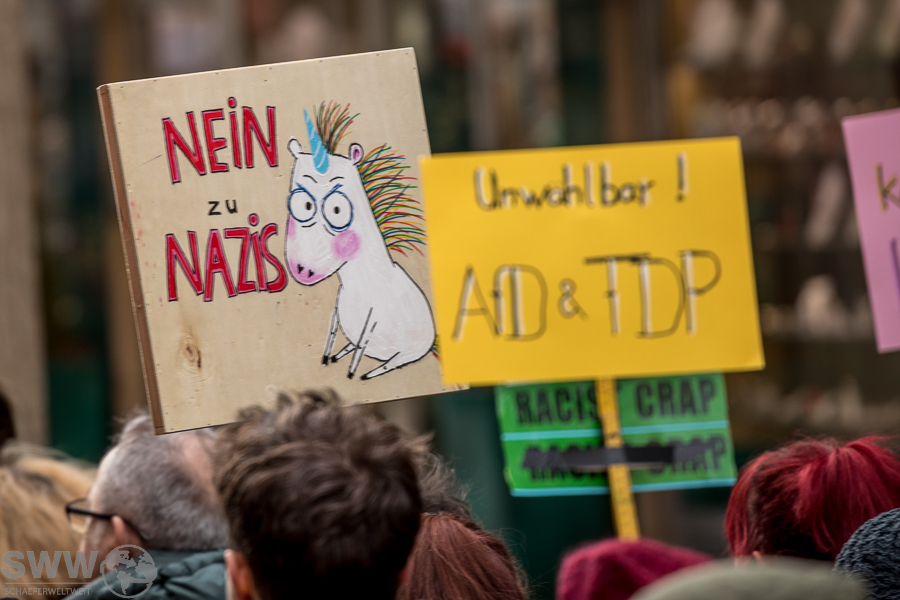 NEIN
zu
NAZIS
Unwählbar !
AfD & FDP
RACIS CRAP
SWW
SCHAEFERWELTWEIT